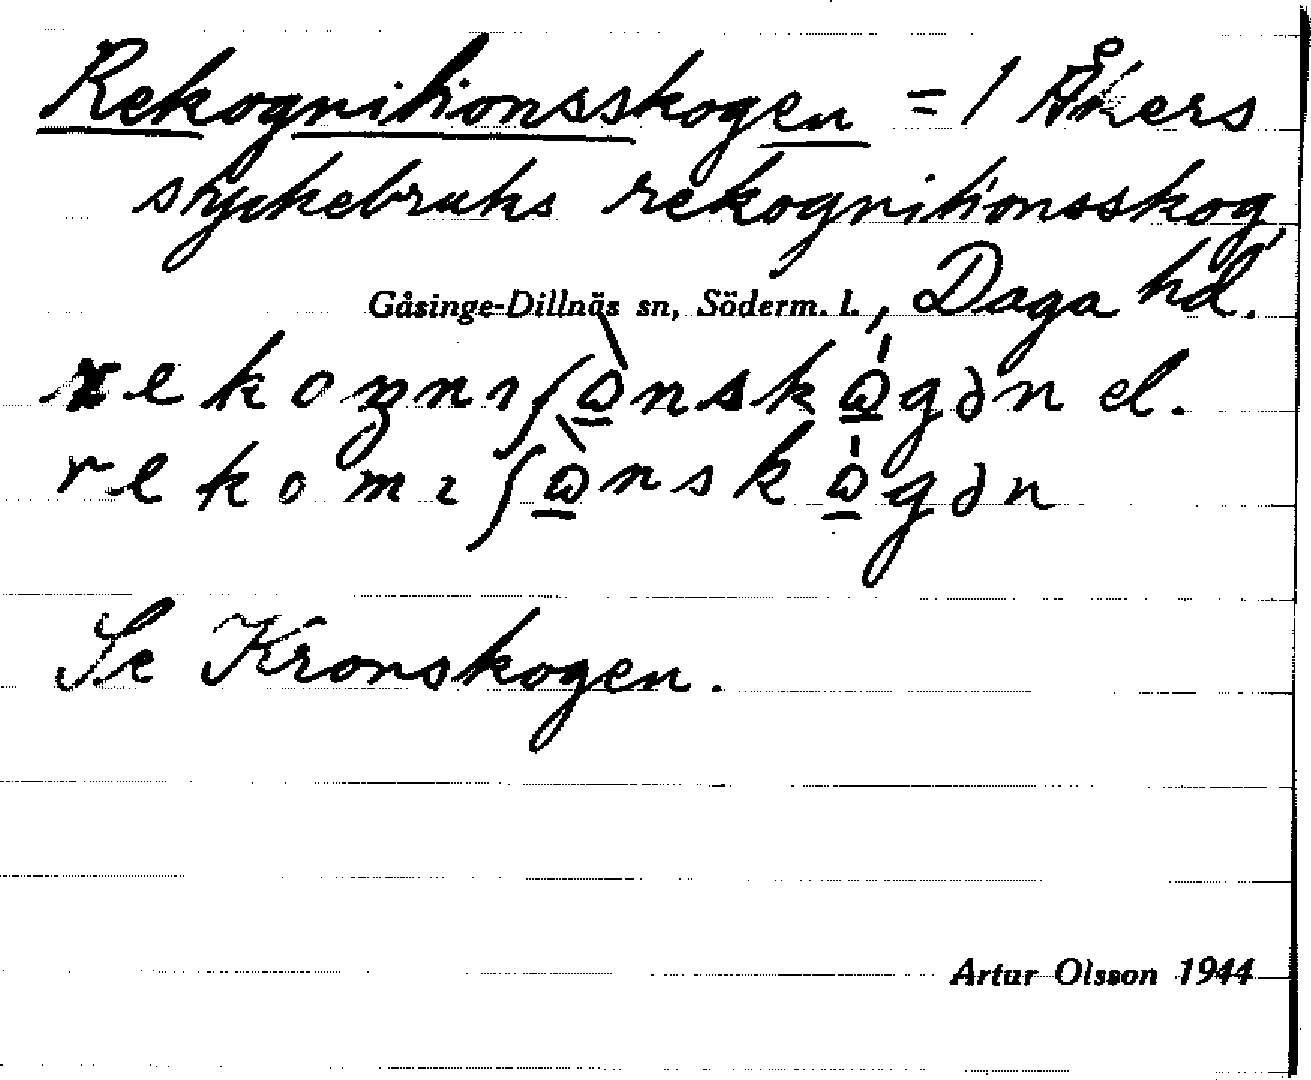 Rekognitionsskogen = 1 Åkers
styckebruks rekognitionsskog,
Gåsinge-Dillnäs sn, Söderm. l., Daga hd.
rekoŋnıʃὼnskω̇gən el.
rekomıʃὼnskω̇gən
Se Kronskogen.
Artur Olsson 1944